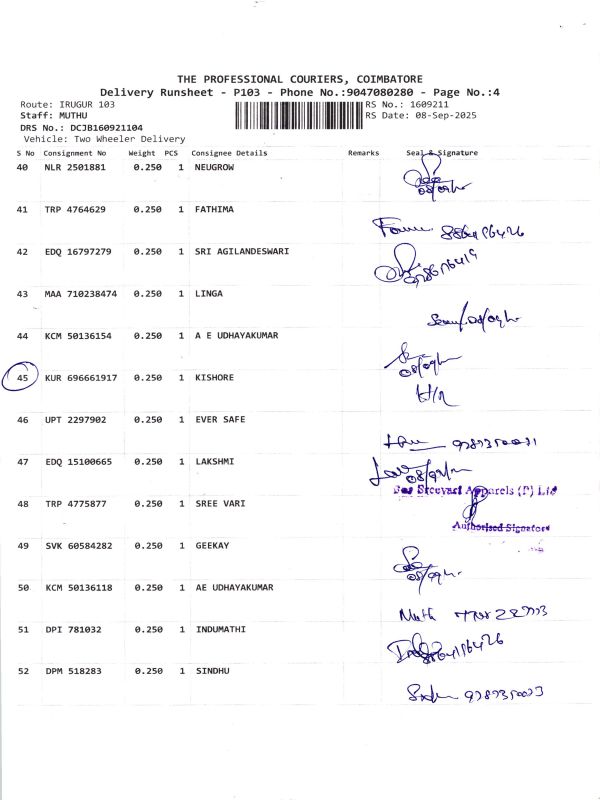 THE PROFESSIONAL COURIERS, COIMBATORE
Delivery Runsheet - P103 - Phone No.:9047080280 - Page No.:4
Route: IRUGUR 103 RS No.: 1609211
Staff: MUTHU RS Date: 08-Sep-2025
DRS No.: DCJB160921104
Vehicle: Two Wheeler Delivery
S No Consignment No Weight PCS Consignee Details Remarks Seal & Signature
40 NLR 2501881 0.250 1 NEUGROW
41 TRP 4764629 0.250 1 FATHIMA
42 EDQ 16797279 0.250 1 SRI AGILANDESWARI
43 MAA 710238474 0.250 1 LINGA
44 KCM 50136154 0.250 1 A E UDHAYAKUMAR
45 KUR 696661917 0.250 1 KISHORE
46 UPT 2297902 0.250 1 EVER SAFE
47 EDQ 15100665 0.250 1 LAKSHMI
For Sreevari Apparels (P) Ltd
48 TRP 4775877 0.250 1 SREE VARI
Authorised Signatory
49 SVK 60584282 0.250 1 GEEKAY
50 KCM 50136118 0.250 1 AE UDHAYAKUMAR
51 DPI 781032 0.250 1 INDUMATHI
52 DPM 518283 0.250 1 SINDHU